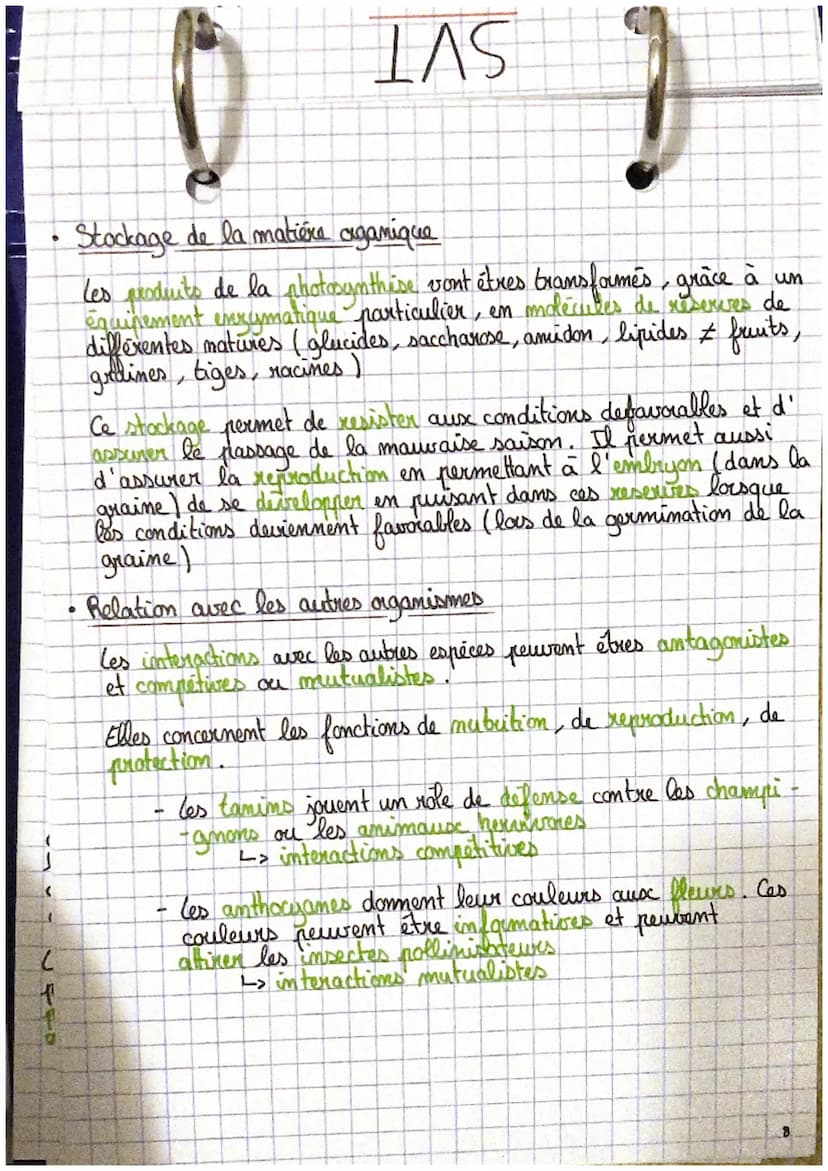 SVT
• Stockage de la matière organique
Les produits de la photosynthèse vont êtres transformés, grâce à un
équipement enzymatique particulier, en molécules de réserves de
différentes natures (glucides, saccharose, amidon, lipides ≠ fruits,
graines, tiges, racines)
Ce stockage permet de resister aux conditions defavorables et d'
assurer le passage de la mauvaise saison. Il permet aussi
d'assurer la reproduction en permettant à l'embryon (dans la
graine) de se développer en puisant dans ces reserves lorsque
les conditions deviennent favorables (lors de la germination de la
graine)
• Relation avec les autres organismes
Les interactions avec les autres espèces peuvent êtres antagonistes
et compétives ou mutualistes.
Elles concernent les fonctions de nutrition, de reproduction, de
protection.
- Les tanins jouent un rôle de défense contre les champi-
-gnons ou les animaux herbivores
↳ interactions compétitives
- Les anthocyanes donnent leur couleurs aux fleurs. Ces
couleurs peuvent être informatives et peuvent
attirer les insectes pollinisateurs
↳ interactions mutualistes
8